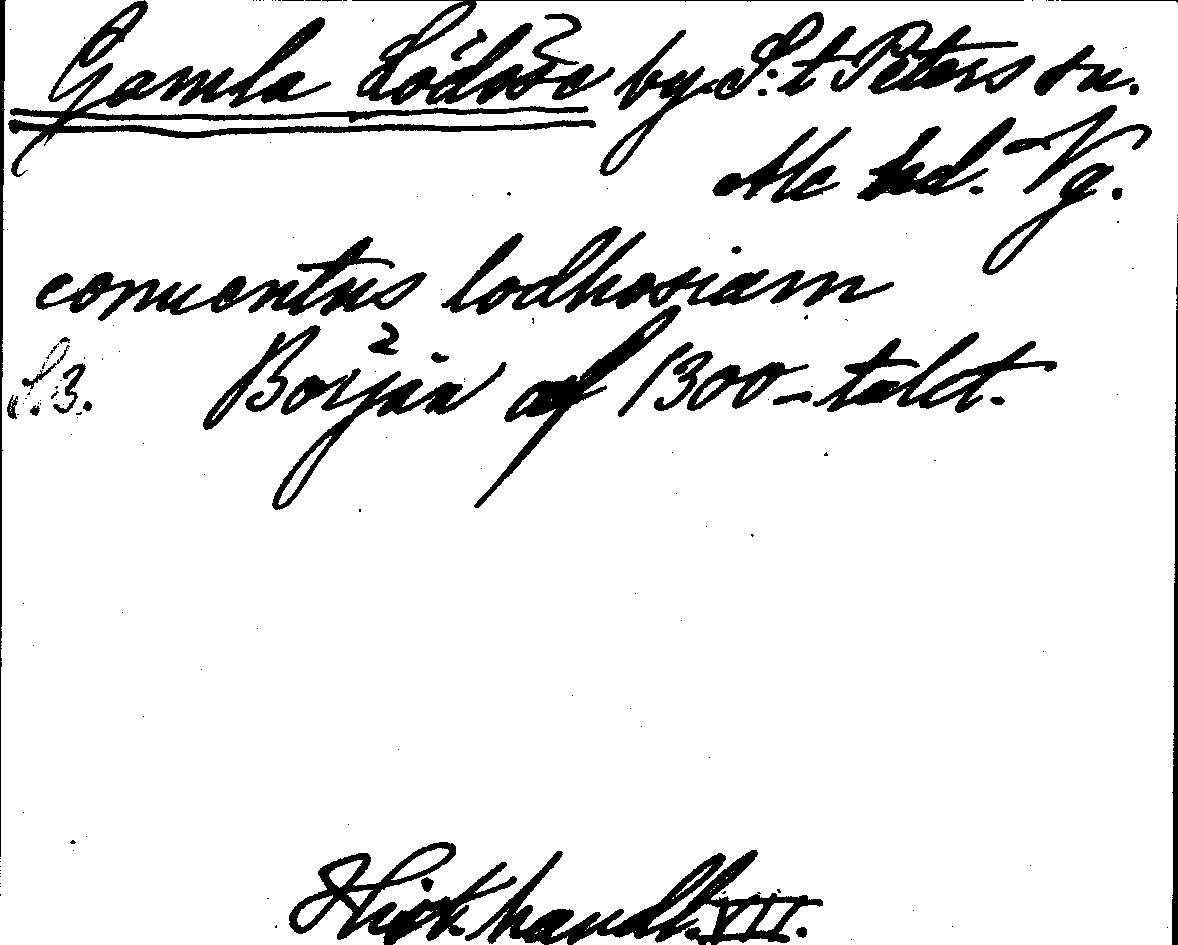 Gamla Lödöse by S:t Peters sn.
Ale hd. Vg.
conuentus lodhosiam
S. 3. Början af 1300-talet.
Hist. handl. VII.